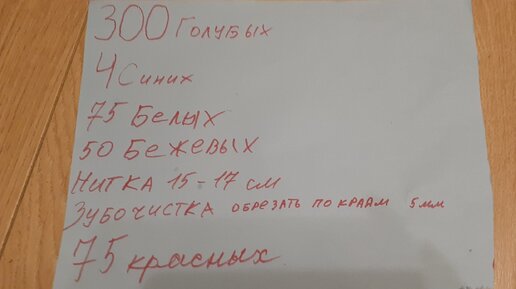 300 Голубых
4 Синих
75 Белых
50 Бежевых
Нитка 15-17 см
Зубочистка обрезать по краям 5мм
75 красных